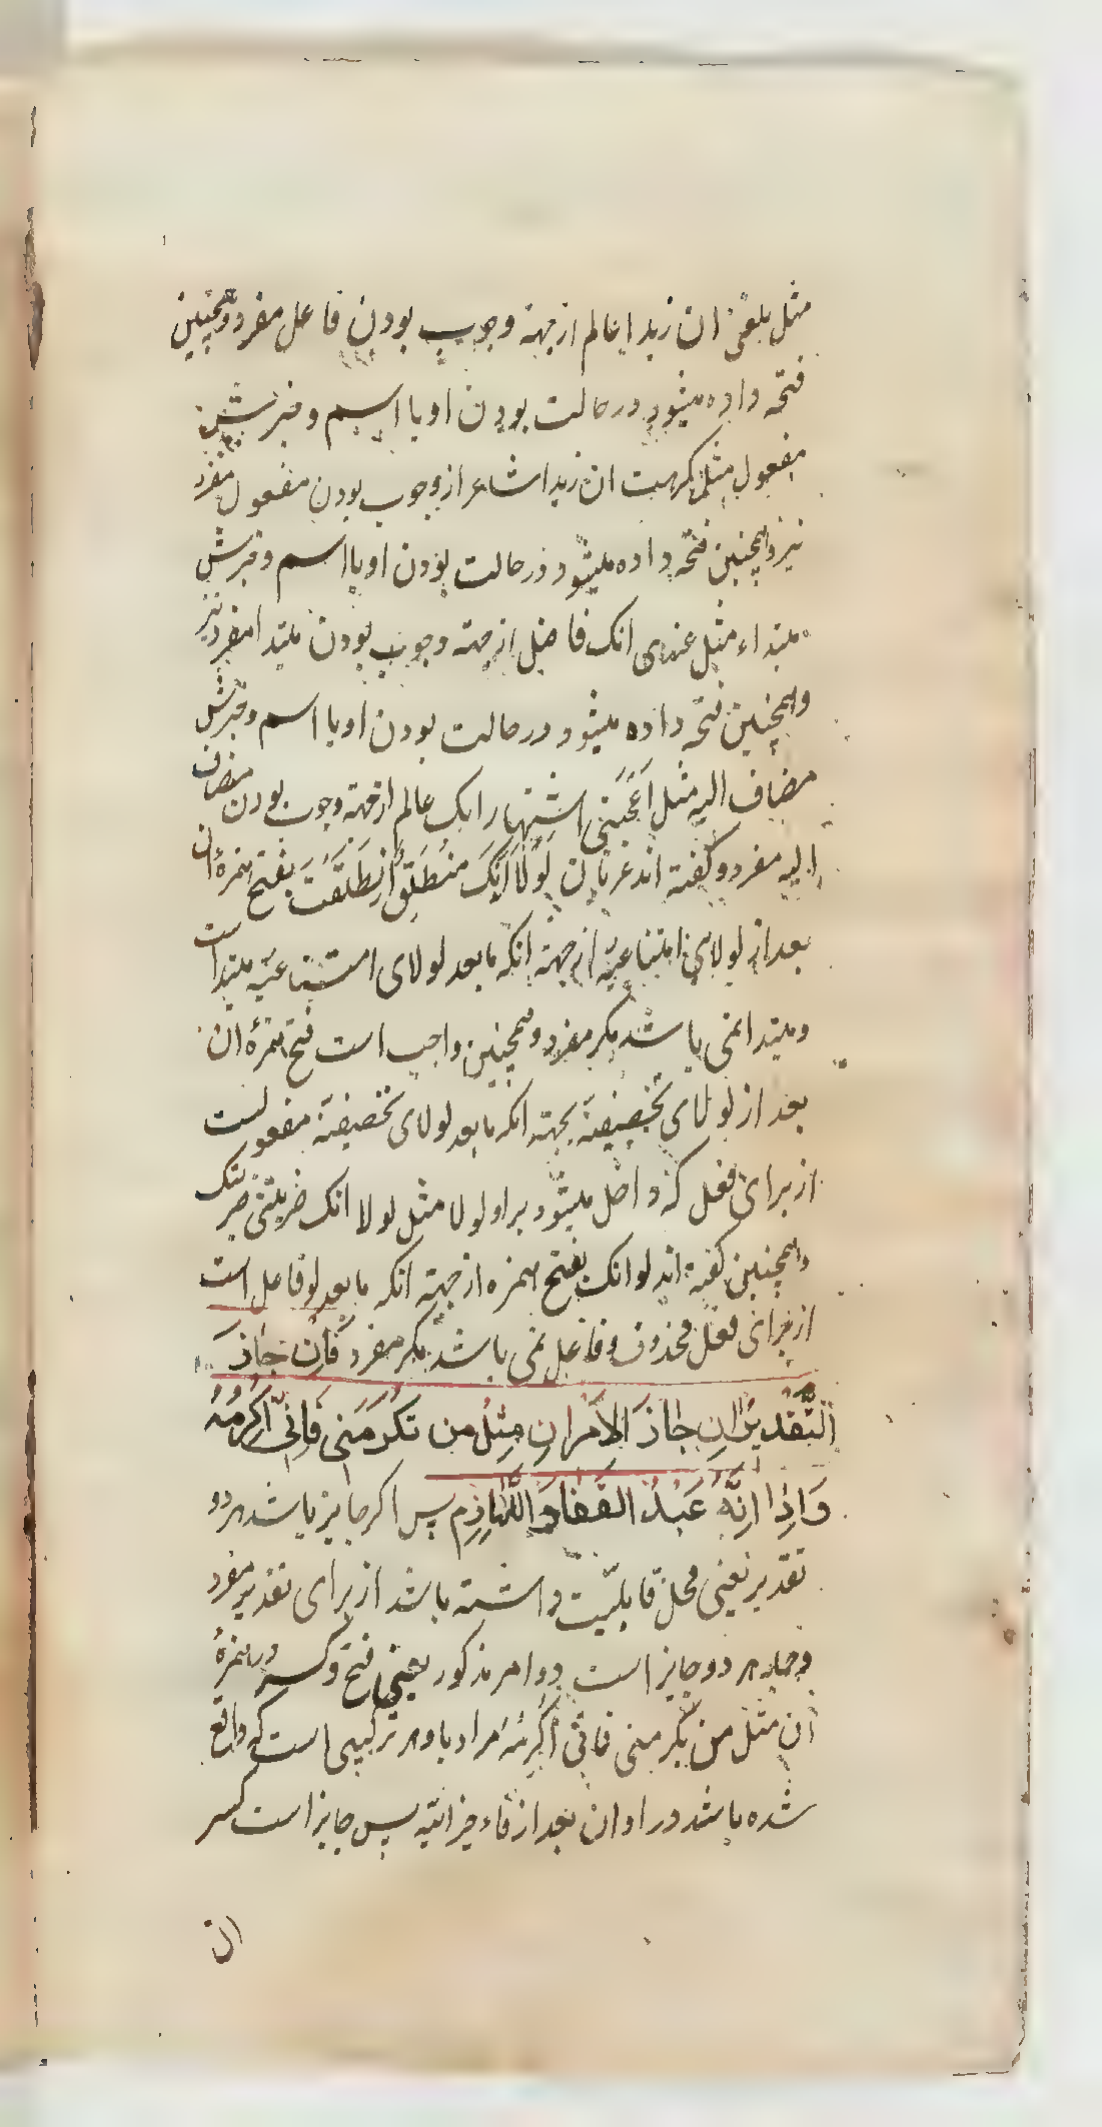 مثل بلغنی ان زیدا عالم از جهة وجوب بودن فاعل مفرد و همچنین
فتحه داده میشود در حالت بودن او با اسم و خبرش
مفعول مثل کرهت ان زیدا شاعر از وجوب بودن مفعول مفرد
نیز و همچنین فتحه داده میشود در حالت بودن او با اسم و خبرش
مبتداء مثل عندی انک فاضل از جهة وجوب بودن مبتدا مفرد نیز
و همچنین فتحه داده میشود در حالت بودن او با اسم و خبرش
مضاف الیه مثل اَعْجَبَنی اشتهار انک عالم از جهة وجوب بودن مضاف
الیه مفرد و گفته اند عربان لَوْلا اَنَّکَ مُنْطَلِقٌ اِنْطَلَقْتَ بفتح همزهٔ ان
بعد از لولای امتناعیّه از جهة انکه ما بعد لولای امتناعیّه مبتدا است
و مبتدا نمی باشد مکر مفرد و همچنین واجب است فتح همزهٔ ان
بعد از لولای تخصیضیّة بجهة انکه ما بعد لولای تخضیضیّة مفعولست
از برای فعل که داخل میشود بر او لولا مثل لولا انک ضربتنی ضربتک
و همچنین کفته اند لو انک بفتح همزه از جهة انکه ما بعد لو فاعل است
از برای فعل محذوف و فاعل نمی باشد مکر مفرد فَاِنْ جٰازَ
التَّقْدیرٰانِ جٰازَ الاَمْرانِ مِثْلُ من تکْرِمَنی فَاِنّی اُکْرِمُهُ
وَاِذٰا اِنَّهُ عَبْدُ القَفٰا وَ اللَّهٰازِمِ پس اکر جایز باشد هر دو
تقدیر یعنی محل قابلیّت داشته باشد از برای تقدیر مفرد
و جمله هر دو جایز است دو امر مذکور یعنی فتح و کسر در همزهٔ
ان مثل من یکرمنی فانّی اُکْرِمُهُ مراد باو هر ترکیبی است که واقع
شده باشد در او ان بعد از فاء جزائیّه پس جایز است کسر
ان